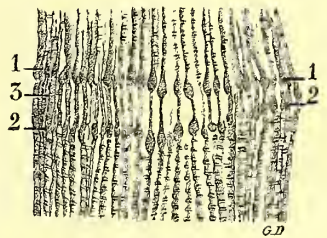 1
3
2
1
2
G.D